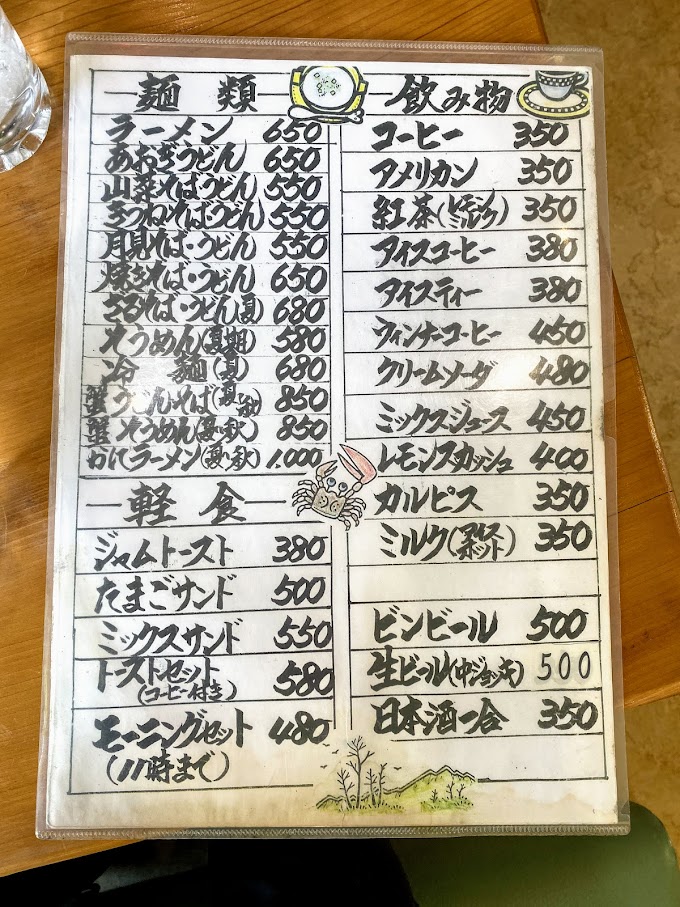 麺類
ラーメン 650
あおぎうどん 650
山菜そばうどん 550
きつねそばうどん 550
月見そば・うどん 550
焼きそば・うどん 650
ざるそば・うどん(夏) 680
そうめん(夏期) 580
冷麺(夏) 680
蟹うどんそば 850
蟹そうめん(夏・秋) 850
かにラーメン(夏・秋) 1.000
軽食
ジャムトースト 380
たまごサンド 500
ミックスサンド 550
トーストセット 580
(コーヒー付き)
モーニングセット 480
(11時まで)
飲み物
コーヒー 350
アメリカン 350
紅茶(レモンミルク) 350
アイスコーヒー 380
アイスティー 380
ウィンナーコーヒー 450
クリームソーダ 480
ミックスジュース 450
レモンスカッシュ 400
カルピス 350
ミルク(アイスホット) 350
ビンビール 500
生ビール(中ジョッキ) 500
日本酒一合 350